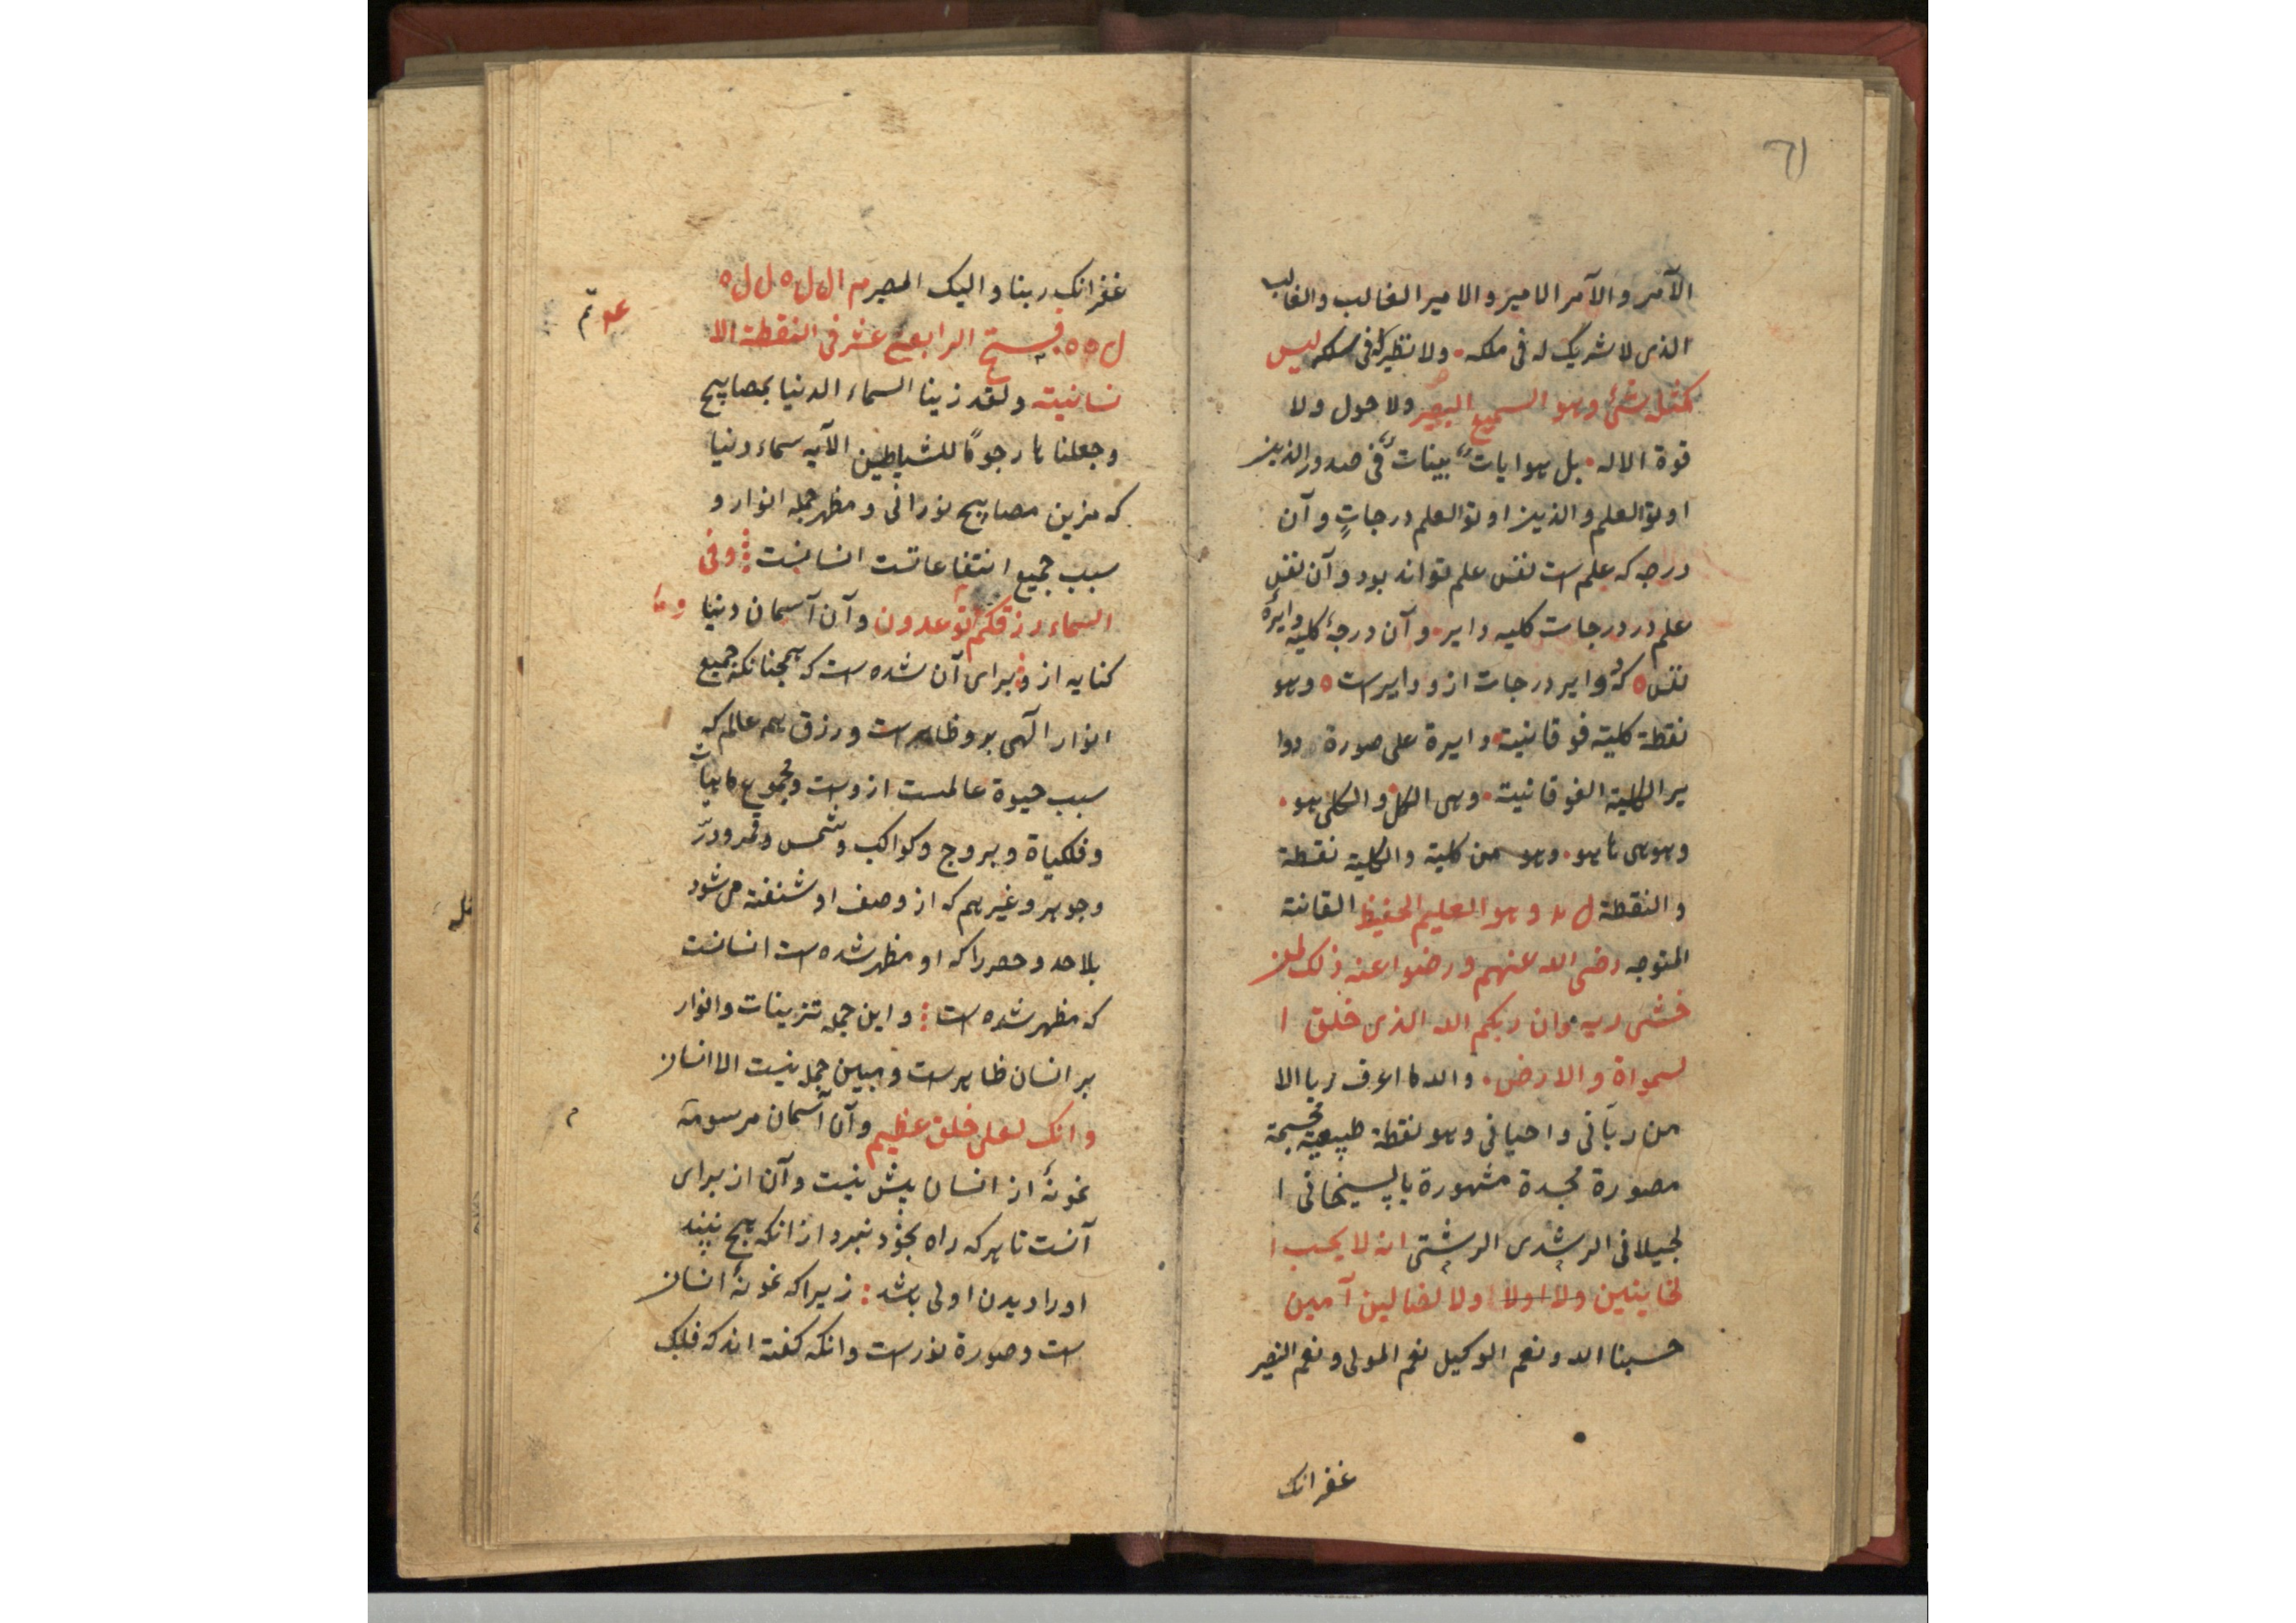 ٦١
الآمر و الآمر الامیر و الامیر الغالب والغالب
الذی لا شریک له فی ملکه ۰ ولا نظیر له فی سلکه لیس
کمثله شئ وهو السمیع البصیر ولا حول ولا
قوة الا له ۰ بل هو ایات بینات فی صدور الذین
اوتو العلم والذین اوتو العلم درجاتٍ و آن
درجه که علم است نفس علم تواند بود و آن نفس
علم در درجات کلیه دایر ۰ و آن درجهٔ کلیه وایرهٔ
نفس ه که دوایر درجات ازو دایر است ه وهو
نقطة کلیة فوقانیة ۰ دایرة علی صورة دوا
یر الکلیة الفوقانیة ۰ وهی الکل و الکلی هو ۰
وهو هی ما هو ۰ وهو من کلیة والکلیة نقطة
والنقطة ل ه د وهو العلیم الحفیظ القانتة
المتوجه رضی الله عنهم و رضوا عنه ذلک لمن
خشی ربه وان ربکم الله الذی خلق ا
لسمواة و الارض ۰ والله ما اعرف ربا الا
من ربانی و احیانی وهو نقطة طبیعیة مجسمة
مصورة مجسدة مشهورة با پسیخانی ا
لجیلانی الرشدی الرشتی انه لا یحب ا
لخاینین ولا اولا ولا لضالین آمین
حسبنا الله و نعم الوکیل نعم المولی و نعم النصیر
غفرانک
غفرانک ربنا والیک المصیر م ال ل ه ل ل ه
ل ه ه ۰ فستح الرابع عشر فی النقطة الا
نسانیة ولقد زینا السماء الدنیا بمصابیح
وجعلنا ها رجوماً للشیاطین الآیه سماء دنیا
که مزین مصابیح نورانی و مظهر جمله انوار و
سبب جمیع انتفاعاتست انسانست وفی
السماء رزقکم توعدون و آن آسمان دنیا
وما
کنایه ازو برای آن شده است که همچنانکه جمیع
انوار الهی برو ظاهر است و رزق همه عالم که
سبب حیوة عالمست ازوست و مجموع کاینات
و فلکیاة و بروج و کواکب و شمس و قمر و درّ
و جوهر و غیرهم که از وصف او شنفته می شود
بلا حد و حصر را که او مظهر شده است انسانست
که مظهر شده است و این جمله تزینات و انوار
بر انسان ظاهر است و مبین جمله نیست الا انسان
وانک لعلی خلق عظیم و آن آسمان مرسومه
نمونهٔ از انسان بیش نیست و آن از برای
آنست تا هر که راه بخود نبرد از انکه هیچ نبیند
او را دیدن اولی باشد : زیرا که نمونهٔ انسان
است و صورة نور است و انکه کفته اند که فلک